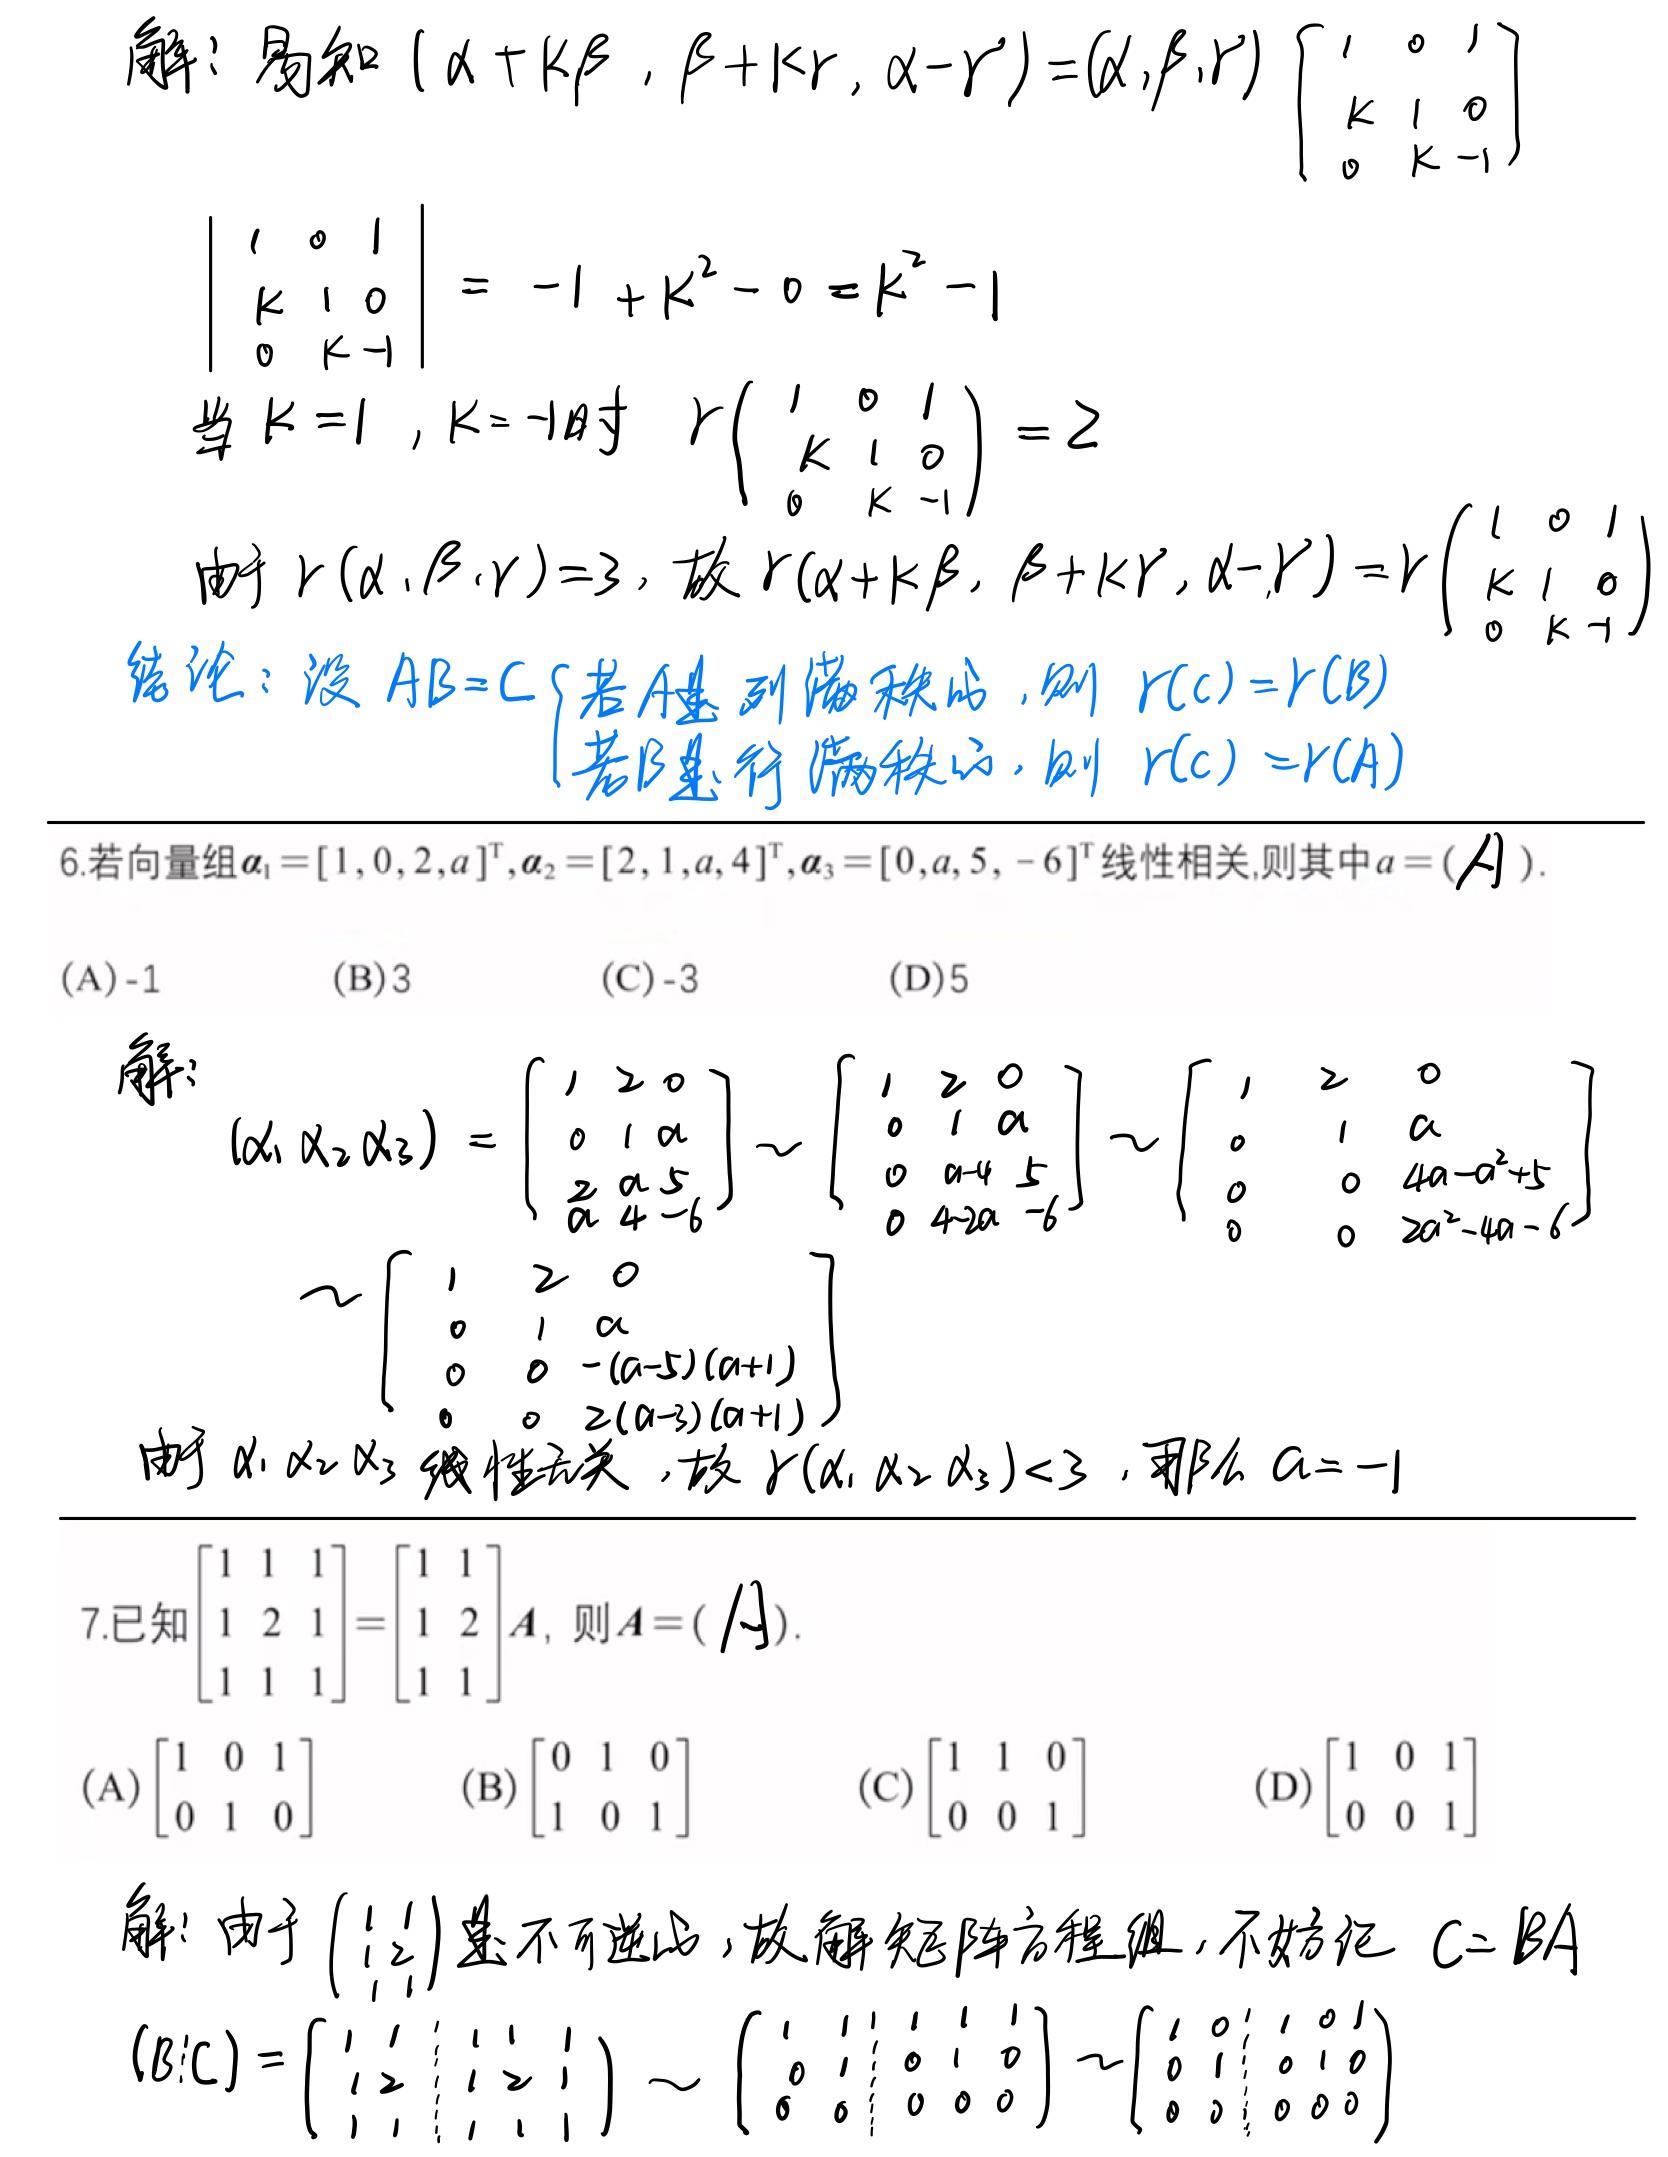 解：易知 (α+kβ，β+kγ，α-γ)=(α,β,γ) [1 0 1
k 1 0
0 k -1]
|1 0 1
k 1 0
0 k -1| = -1+k²-0=k²-1
当 k=1，k=-1时 r(1 0 1
k 1 0
0 k -1)=2
由于 r(α,β,γ)=3，故 r(α+kβ，β+kγ，α-γ)=r(1 0 1
k 1 0
0 k -1)
结论：设 AB=C {若A是列满秩的，则 r(C)=r(B)
若B是行满秩的，则 r(C)=r(A)
6.若向量组α₁=[1,0,2,a]ᵀ,α₂=[2,1,a,4]ᵀ,α₃=[0,a,5,-6]ᵀ线性相关,则其中a=(A).
(A)-1 (B)3 (C)-3 (D)5
解：
(α₁ α₂ α₃) = [1 2 0
0 1 a
2 a 5
a 4 -6] ~ [1 2 0
0 1 a
0 a-4 5
0 4-2a -6] ~ [1 2 0
0 1 a
0 0 4a-a²+5
0 0 2a²-4a-6]
~ [1 2 0
0 1 a
0 0 -(a-5)(a+1)
0 0 2(a-3)(a+1)]
由于 α₁ α₂ α₃ 线性无关，故 r(α₁ α₂ α₃)<3，那么 a=-1
7.已知[1 1 1
1 2 1
1 1 1]=[1 1
1 2
1 1]A, 则A=(A).
(A)[1 0 1
0 1 0] (B)[0 1 0
1 0 1] (C)[1 1 0
0 0 1] (D)[1 0 1
0 0 1]
解：由于(1 1
1 2
1 1)是不可逆的，故解矩阵方程组，不妨记 C=BA
(B¦C)=[1 1 ¦ 1 1 1
1 2 ¦ 1 2 1
1 1 ¦ 1 1 1) ~ [1 1 ¦ 1 1 1
0 1 ¦ 0 1 0
0 0 ¦ 0 0 0] ~ [1 0 ¦ 1 0 1
0 1 ¦ 0 1 0
0 0 ¦ 0 0 0)